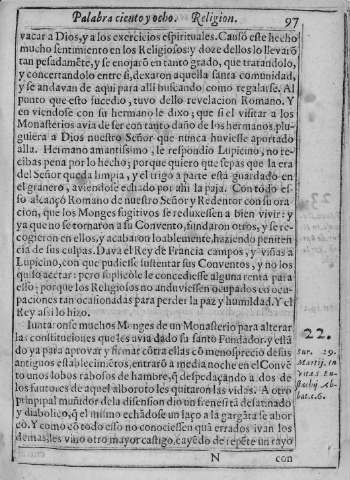 Palabra ciento y ocho. Religion. 97
vacar a Dios, y a los exercicios espirituales. Causó este hecho
mucho sentimiento en los Religiosos: y doze dellos lo llevarõ
tan pesadamẽte, y se enojarõ en tanto grado, que tratandolo,
y concertandolo entre si, dexaron aquella santa comunidad,
y se andavan de aqui para alli buscando como regalarse. Al
punto que esto sucedio, tuvo dello revelacion Romano. Y
en viendose con su hermano le dixo; que si el visitar a los
Monasterios avia de ser con tanto daño de los hermanos, plu-
guiera a Dios nuestro Señor que nunca huviesse aportado
alla. Hermano amantissimo, le respondio Lupicino, no re-
cibas pena por lo hecho; porque quiero que sepas que la era
del Señor queda limpia, y el trigo a parte està guardado en
el granero, aviendose echado por ahi la paja. Con todo es-
so alcançó Romano de nuestro Señor y Redentor con su ora
cion, que los Monges fugitivos se reduxessen a bien vivir: y
ya que no se tornaron a su Convento, fundaron otros, y se re-
cogieron en ellos, y acabaron loablemente, haziendo peniten
cia de sus culpas. Dava el Rey de Francia campos, y viñas a
Lupicino, con que pudiesse sustentar sus Conventos, y no los
quiso acetar: pero suplicòle le concediesse alguna renta para
ello; porque los Religiosos no anduviessen ocupados en ocu-
paciones tan ocasionadas para perder la paz y humildad. Y el
Rey assi lo hizo.
Iuntaronse muchos Monges de un Monasterio para alterar
las constituciones que les avia dado su santo Fundador: y estã
do ya para aprovar y firmar cõtra ellas cõ menosprecio de sus
antiguos establecimiẽtos, entrarõ a media noche en el Convẽ
to unos lobos rabosos de hambre, q̃ despedaçando a dos de
los fautores de aquel alboroto les quitaron las vidas. A otro
principal muñidor de la disension dio un frenesi tã desatinado
y diabolico, q̃ el mismo echãdose un laço a la gargãta se ahor
cò. Y como cõ todo esso no conociessen quã errados ivan los
demas, les vino otro mayor castigo, cayẽdo de repẽte un rayo
N con
22.
Sur. 29.
Martij, in
vita S. Eu-
stachij Ab-
bat. c. 6.